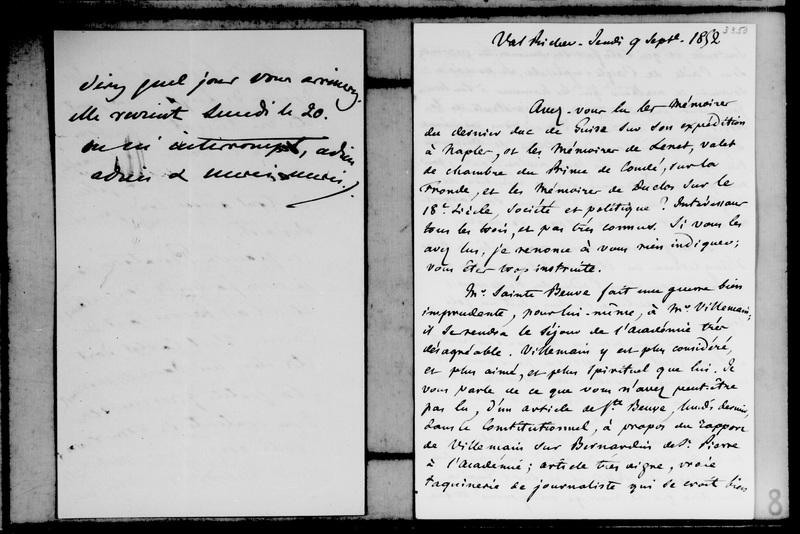 d'ici quel jour vous arriverez.
Elle revient lundi le 20.
on m'interrompt, adieu
adieu
3350
Val Richer - Jeudi 9 Septe. 1852
Avez-vous lu les Mémoires
du dernier duc de Guise sur son expédition
à Naples, et les Mémoires de Lenet, valet
de chambre du Prince de Condé, sur la
Fronde, et les Mémoires de Duclos sur le
18e siècle, société et politique ? Intéressans
tous les trois, et pas très connus. Si vous les
avez lus, je renonce à vous rien indiquer ;
vous êtes trop instruite.
Mr. Sainte Beuve fait une guerre bien
imprudente, pour lui-même, à Mr. Villemain ;
il se rendra le séjour de l'Académie très
désagréable. Villemain y est plus considéré,
et plus aimé, et plus spirituel que lui. Je
vous parle de ce que vous n'avez peut-être
pas lu, d'un article de Ste Beuve, lundi dernier,
dans le Constitutionnel, à propos du rapport
de Villemain sur Bernardin de St. Pierre
à l'Académie ; article très aigre, vraie
taquinerie de journaliste qui se croit bien
8